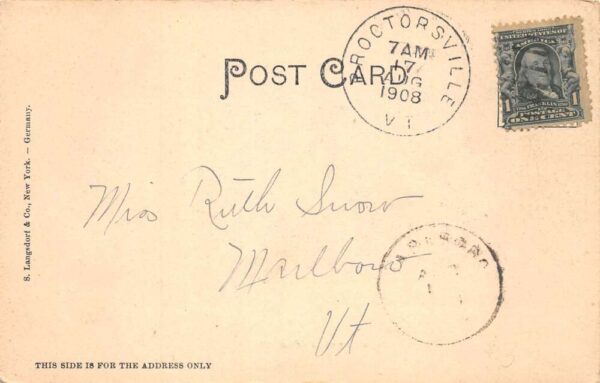 POST CARD
PROCTORSVILLE
7 AM
17
AUG
1908
VT
UNITED STATES OF
AMERICA
1
1
POSTAGE
ONE CENT
S. Langsdorf & Co., New York. — Germany.
Miss Ruth Snow
Marlboro
Vt
THIS SIDE IS FOR THE ADDRESS ONLY